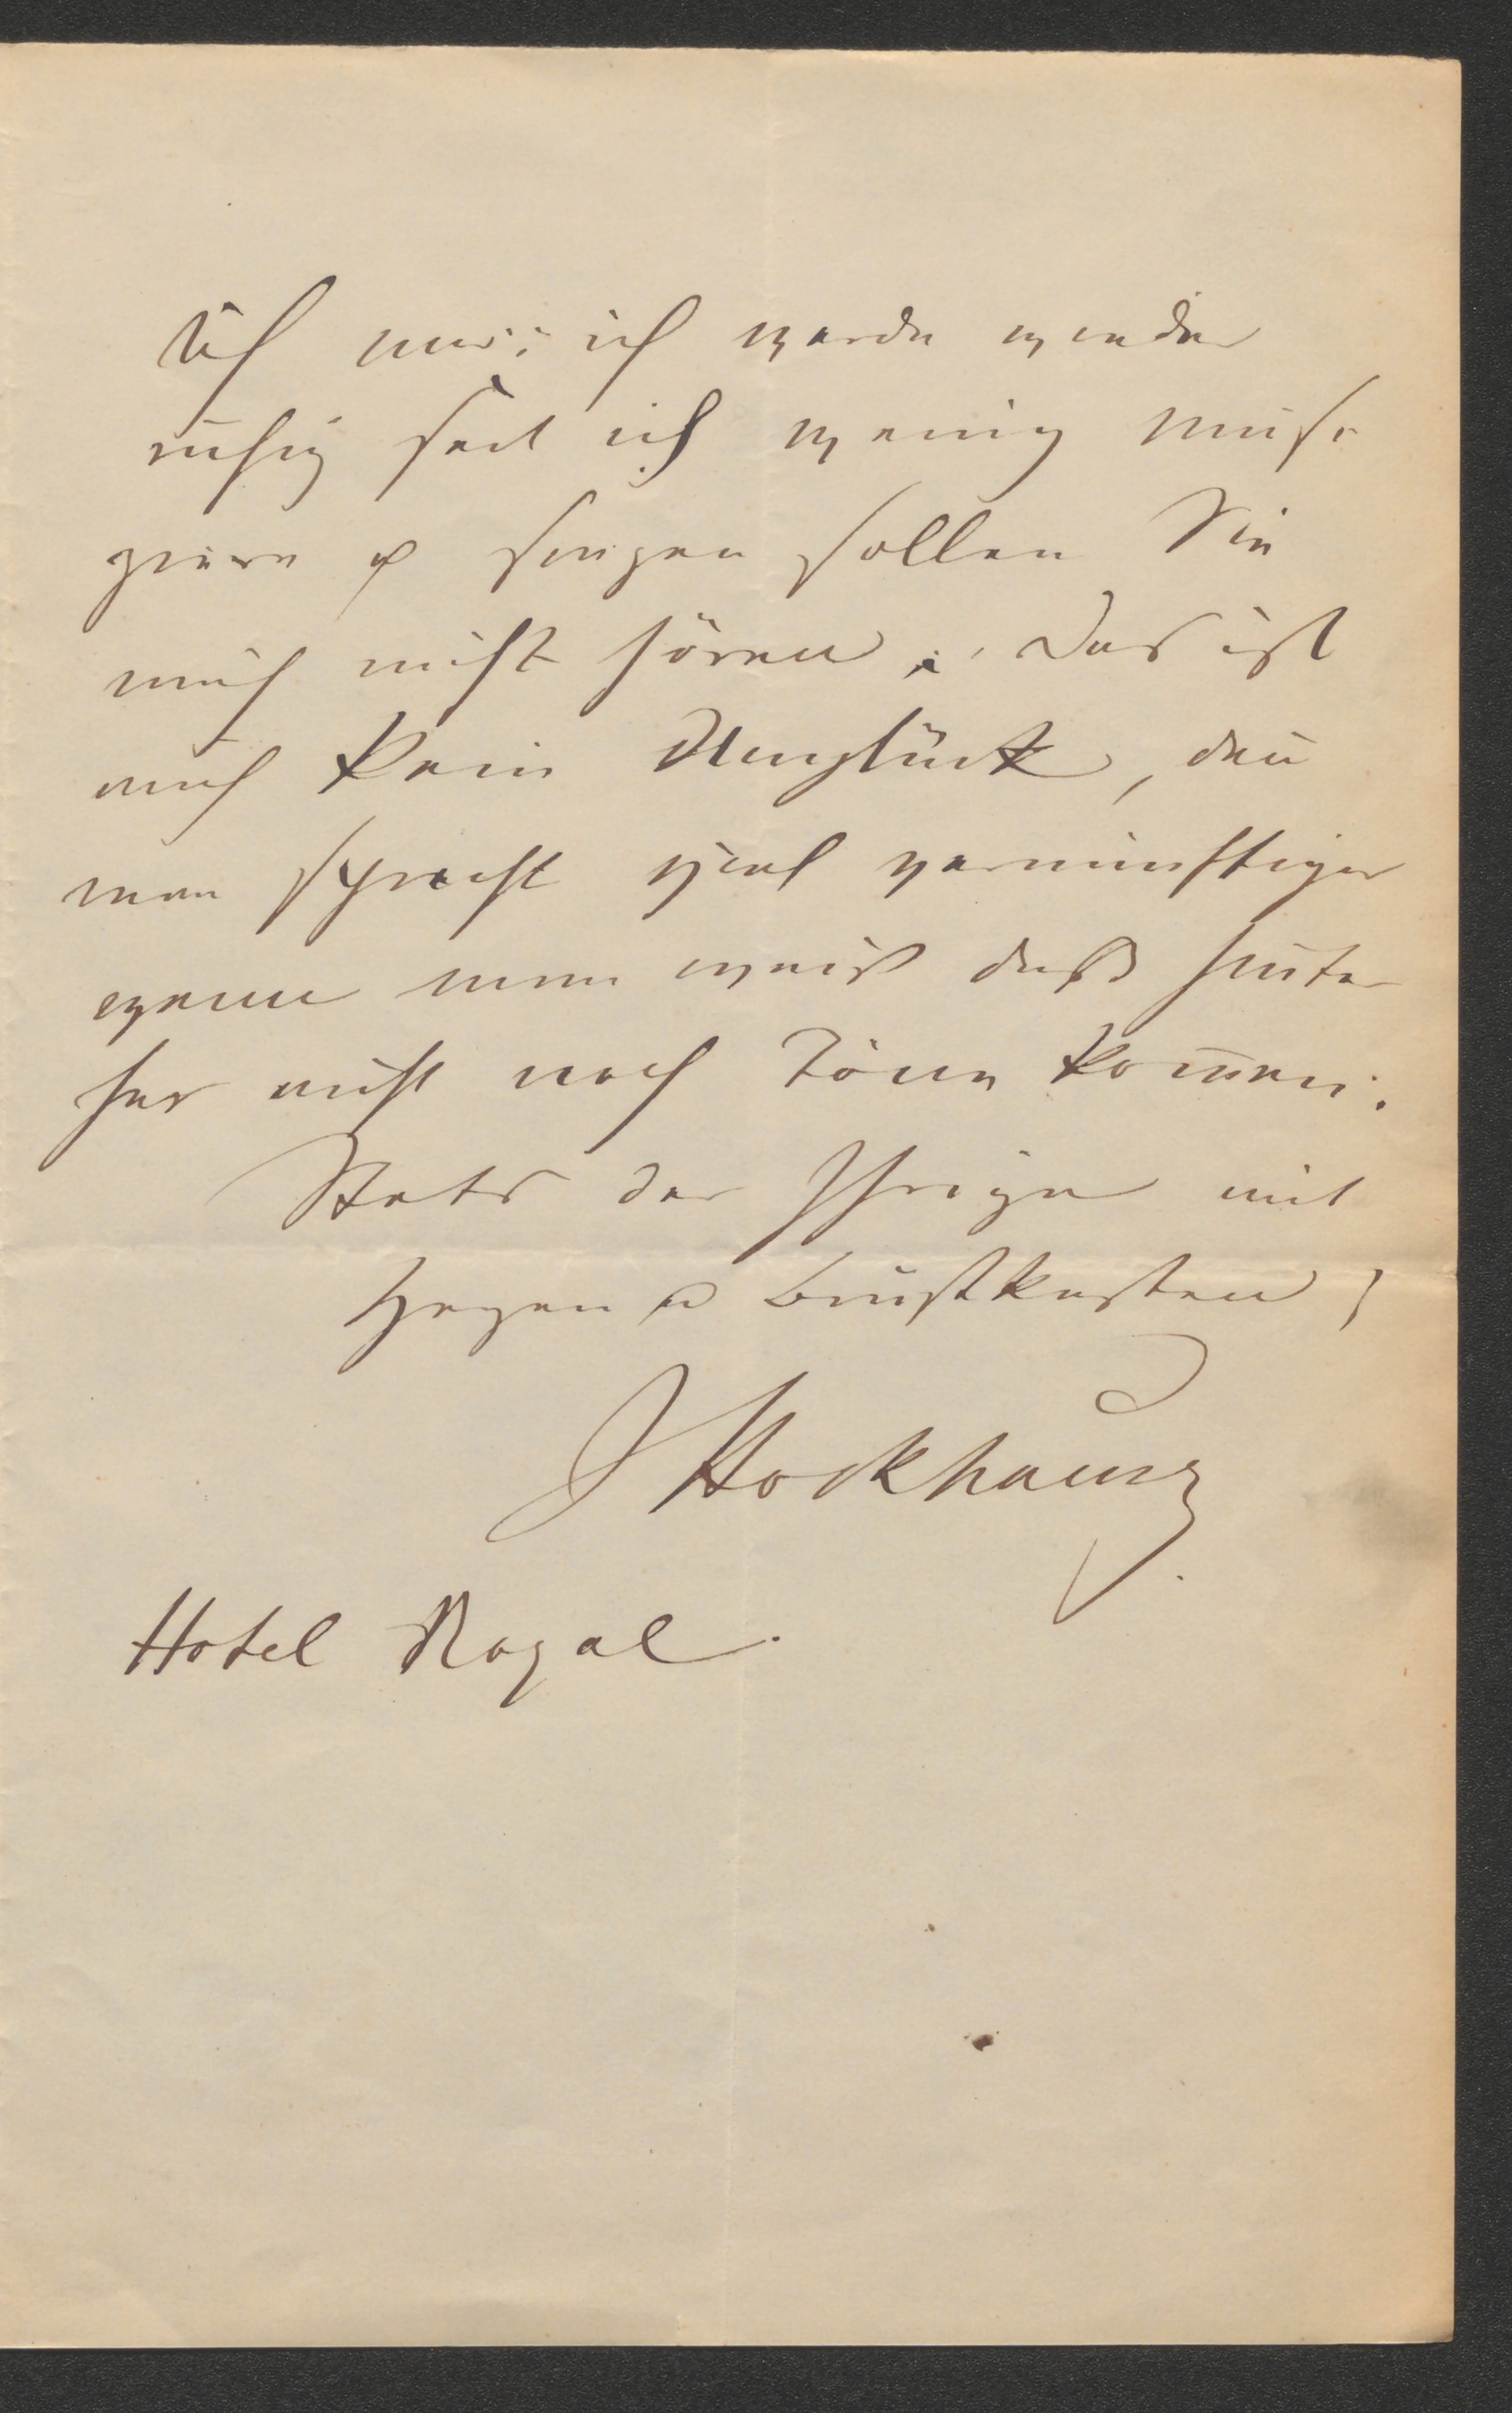 Ich nur; ich werde wieder
ruhig seit ich wenig musi
ziere & singen sollen Sie
mich nicht hören; das ist
auch kein Unglück, deñ
man spricht viel vernünftiger
wenn man weiß daß hinter
her nicht noch Töne kom̄en.
Stets der Ihrige mit
Herzen u Brustkasten,
J Stockhausen
Hotel Royal.